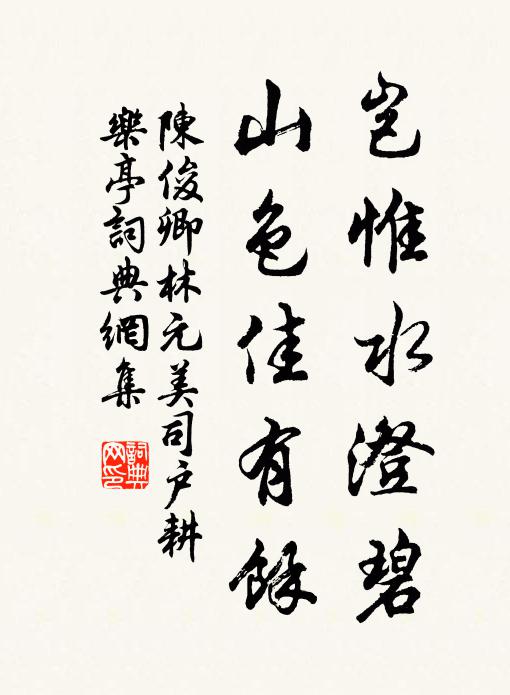 豈惟水澄碧
山色佳有餘
陳俊卿林元美司戶耕
樂亭詞典網集
詞典
网印